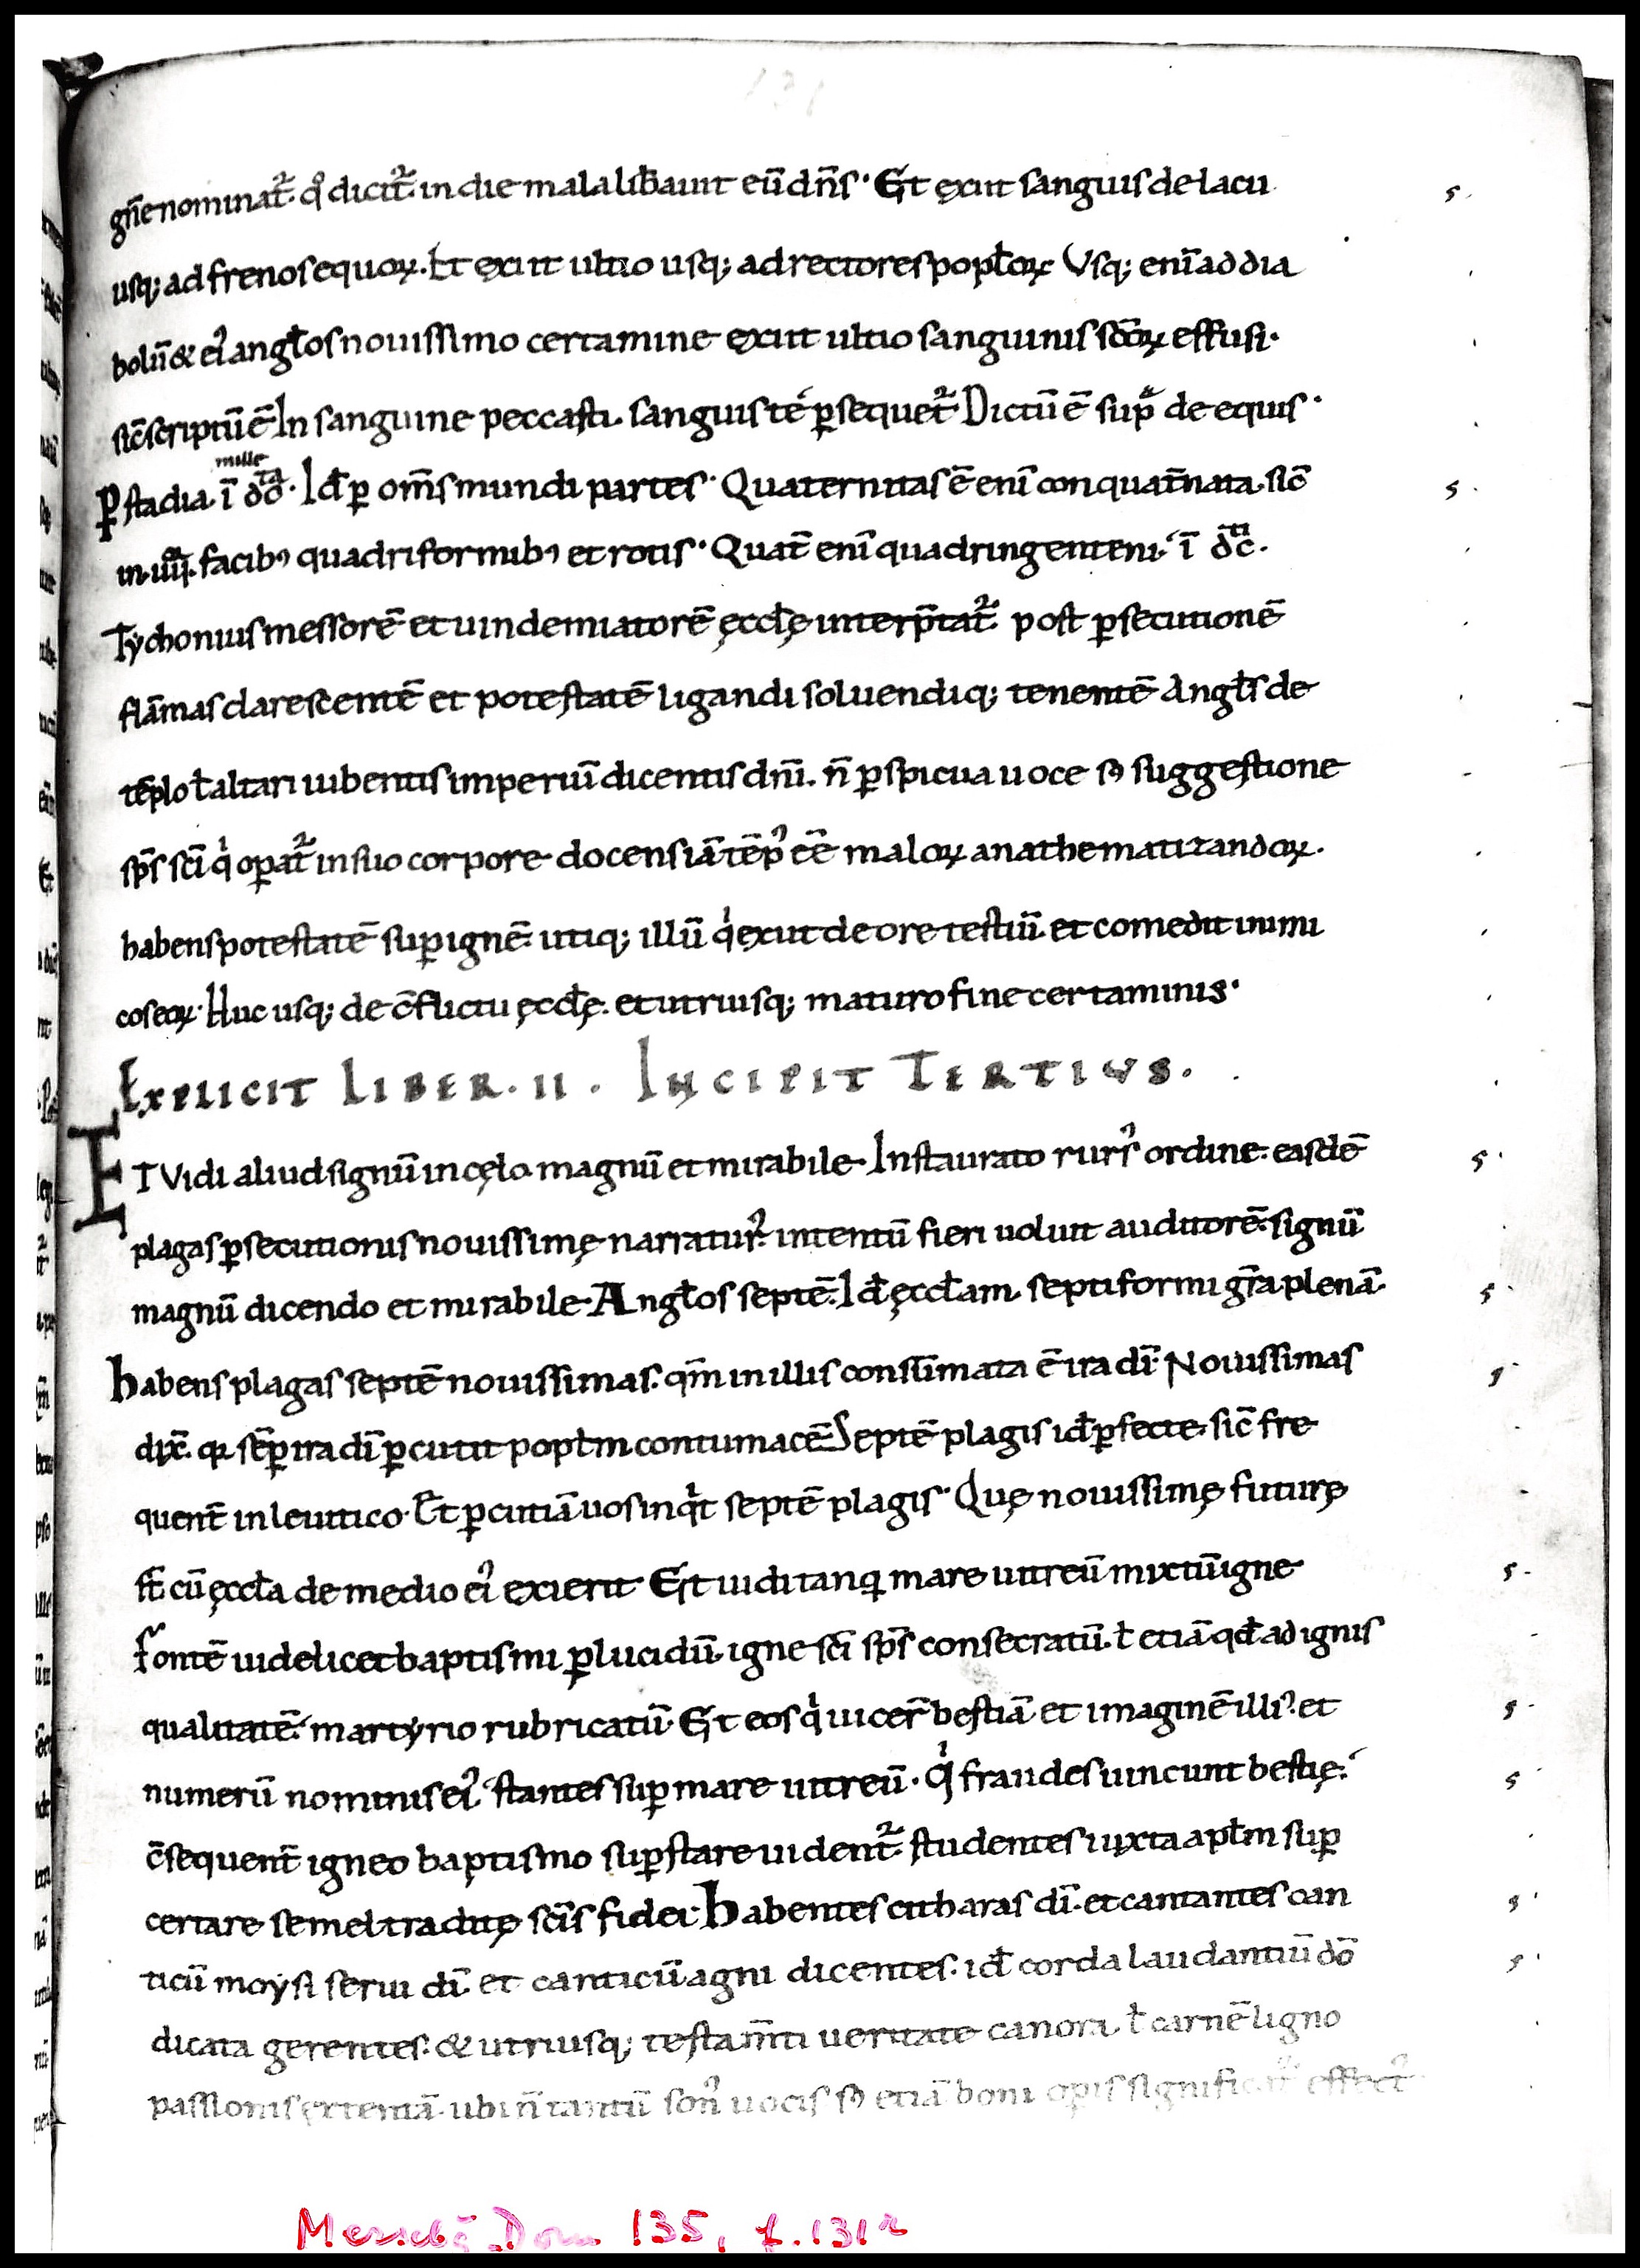 131
gñe nominat᷑. qͦ dicit᷑. in die mala lib̄auit eū dn̄s. Et exiit sanguis de lacu
usq; ad frenos equoꝝ. Et exiit ultio usq; ad rectores popl̄oꝝ Vsq; eni᷑ ad dia
bolū & ei᷒ angl̄os nouissimo certamine exiit ultio sanguinis sc̄oꝝ effusi.
sic̄ scriptū ē In sanguine peccasti. sanguis té ꝑsequet᷑ Dictū ē sup͛ de equis.
ꝑ stadia mille ī dc̄. Id̄ ꝑ om̄s mundi partes. Quaternitas ē eni᷑ conquat̄nata. sic̄
in .iiii. facib᷒ quadriformib᷒ et rotis. Quat̄ eni᷑ quadringenteni. ī dc̄.
Tychonius messorē et uindemiatorē ęccl̄ę interp̄tat᷑. post ꝑsecutionē
flām̄as clarescentē et potestatē ligandi soluendiq; tenentē Angl̄s de
tēplo ł altari iubentis imperiū dicentis dn̄i. n̄ ꝑspicua uoce sꝫ suggestione
sp̄s sc̄i qͥ oꝑat᷑ in suo corpore docens iā tēp᷒ eē maloꝝ anathematizandoꝝ.
habens potestatē suꝑ ignē. utiq; illū qͥ exiit de ore testiū. et comedit inimi
cos eoꝝ. Huc usq; de c̄flictu ęccl̄ę. et utriusq; maturo fine certaminis.
EXPLICIT LIBER .II. INCIPIT TERTIVS.
ET Vidi aliud signū in cęlo magnū et mirabile. Instaurato rurs᷒ ordine. easdē
plagas ꝑsecutionis nouissimę narratur᷒. intentū fieri uoluit auditorē. signū
magnū dicendo et mirabile. Angl̄os septē. Id̄ ęccl̄am septiformi gr̄a plenā.
habens plagas septē nouissimas. qm̄ in illis consūmata ē ira dī. Nouissimas
dix̄. qꝛ sēꝑ ira dī ꝑcutit popl̄m contumacē Septē plagis id̄ ꝑfecte. sic̄ fre
quent̄ in leuitico. Et ꝑcutiā uos inqͥt septē plagis. Quę nouissimę futurę
st̄ cū ęccl̄a de medio ei᷒ exierit Et uidi tanq̄ mare uitreū mixtū igne
fontē uidelicet baptismi ꝑlucidū. igne sc̄i sp̄s consecratū. ł etiā qd̄ ad ignis
qualitatē. martyrio rubricatū. Et eos qͥ uicer̄ bestiā et imaginē illi᷒. et
numerū nominis ei᷒ stantes suꝑ mare uitreū. qͥ fraudes uincunt bestię.
c̄sequent̄ igneo baptismo suꝑstare uident᷑. studentes iuxta apl̄m suꝑ
certare semel traditę sc̄is fidei. habentes citharas dī. et cantantes can
ticū moysi serui dī. et canticū agni dicentes. id̄ corda laudantiū dō
dicata gerentes. & utriusq; testam̄ti ueritate canora. ł carnē ligno
passionis extentā. ubi n̄ tantū son᷒ uocis sꝫ etiā boni opis significat᷑ effect᷒
Merseb. Dom 135, f. 131r